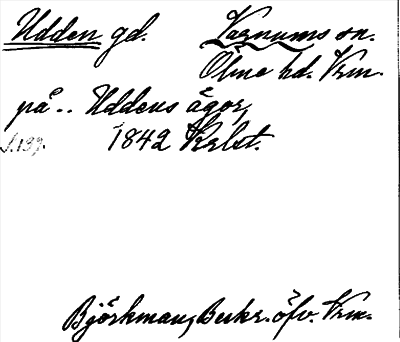 Udden gd. Varnums sn.
Ölme hd. Vrm.
på .. Uddens ägor,
s. 137. 1842 Krlst.
Björkman, Beskr. öfv. Vrm.